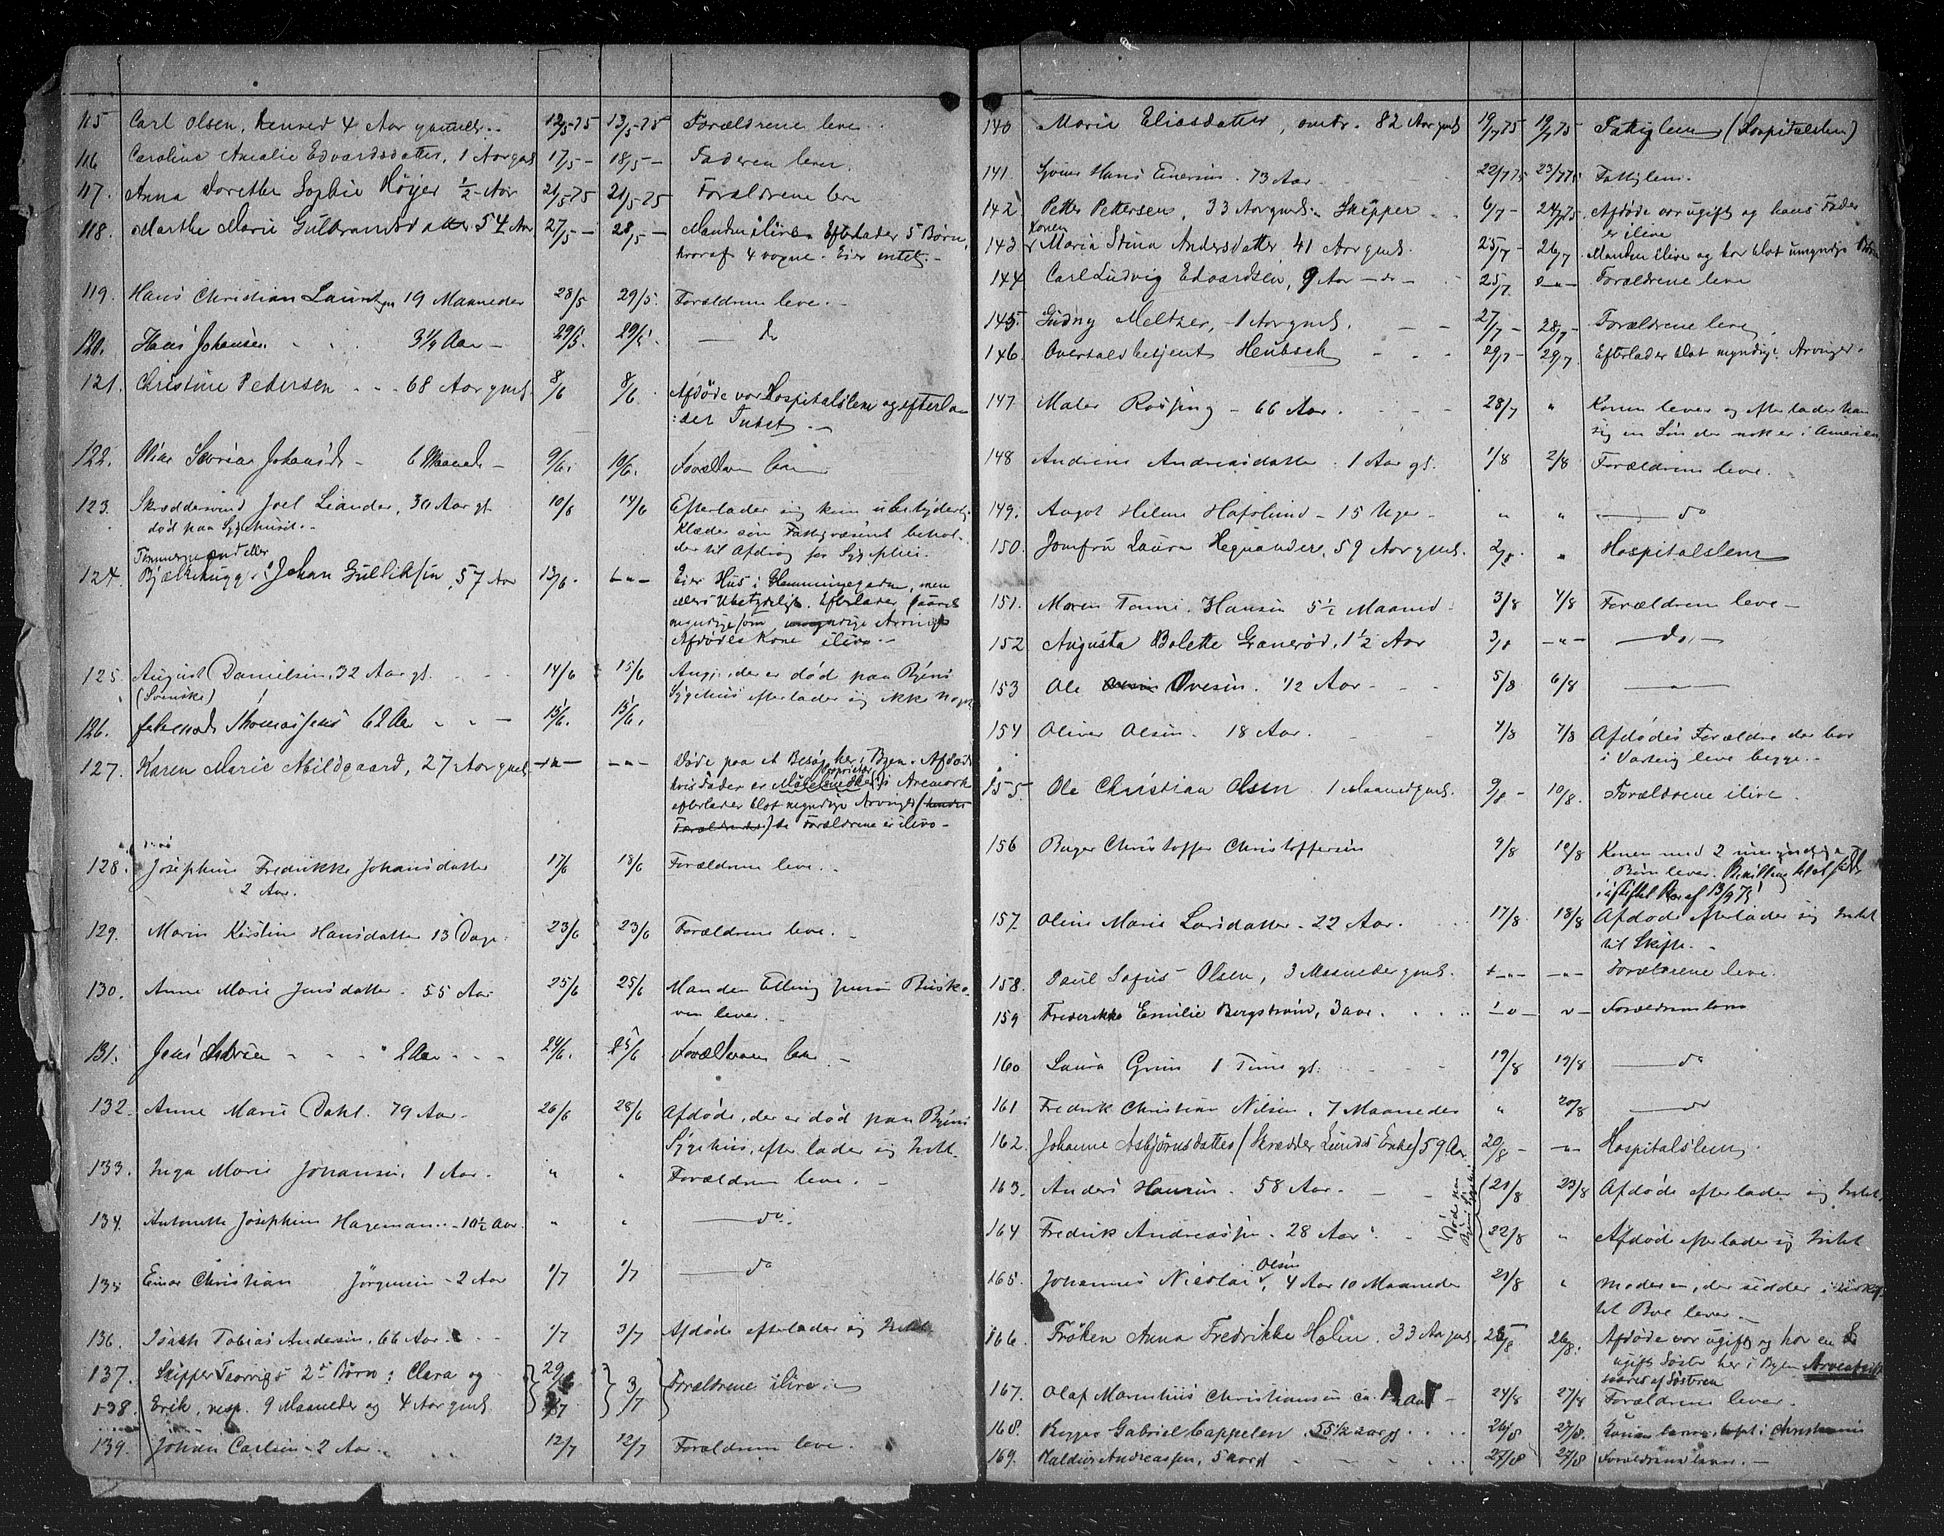 115 Carl Olsen, henved 4 Aar gammel. 12/5-75 13/5-75 Forældrene leve.
116 Caroline Amalie Edvardsdatter, 1 Aar gml 17/5 - 18/5 - Faderen lever.
117. Anna Dorethe Sophie Höyer 1/2 Aar 21/5-75 21/5-75 Forældrene leve
118. Marthe Marie Guldbrandsdatter 54 Aar 27/5 - 28/5 - Manden ilive. Efterlader 5 Børn,
hvoraf 4 vogne. Eier intet.
119. Hans Christian Lauritzen 19 Maaneder 28/5 29/5. Forældrene leve.
120. Hans Johansen 3 1/4 Aar 29/5. 29/5. do
121. Christine Pedersen 68 Aar gml. 8/6 8/6. Afdøde var Hospitalslem og efterla
der Intet.
122. 6 Maaneder 9/6. 10/6. Forældrene leve
123. Skræddersvend Joel Liander, 30 Aar gl. 10/6 14/6 Efterlader sig kun ubetydelig
død paa Sygehuset. Klæder som Fattigvæsenet behol-
der til Afdrag for Sygepleie.
Tømmermand eller
124. Bjelkehugger Johan Gulliksen, 57 Aar 13/6. -"- Eier Hus i Glemmingegaden, men
ellers Ubetydeligt. Efterlader saavel
myndige som umyndige Arvinger
Afdødes Kone ilive.
125. August Danielsen, 32 Aar gl. 14/6 15/6 Angj., der er død paa Byens
(Svenske) Sygehus efterlader sig ikke noget
126. Thomassens 62 Aar 15/6. 15/6.
127. Karen Marie Abildgaard, 27 Aar gml. -"- -"- Døde paa et Besøg her i Byen. Afdødes
Proprietær
hvis Fader er i Aremark
efterlader blot myndige Arvinger (hendes
Forældrene) da Forældrene er ilive-
128. Josephine Fredrikke Johansdatter 17/6 18/6 Forældrene leve.
2 Aar.
129. Maren Kirstine Hansdatter 13 Dage 23/6 23/6 Forældrene leve.
130. Anne Marie Jensdatter. 55 Aar 25/6 25/6 Manden Elling Jensen Busko-
ven lever.
131. Jens 2 Aar 24/6. 25/6 Forældrene leve
132. Anne Marie Dahl. 79 Aar. 26/6 28/6 Afdøde, der er død paa Byens
Sygehus, efterlader sig Intet.
133. Inga Marie Johansen, 1 Aar. " " Forældrene leve.
134. Antonette Josephine Hageman 10 1/2 Aar. " " do.
135 Einar Christian Jörgensen - 2 Aar 1/7 1/7 do
136. Isach Tobias Andersen, 66 Aar. 1/7 3/7 Afdøde efterlader sig Intet.
137. Skipper 2de Børn: Clara og 29/6 3/7 Forældrene ilive.
138. Erik, resp. 9 Maaneder og 4 Aar gml. /7
139. Johan Carlsen - 2 Aar 12/7 12/7 Forældrene leve.
140 Marie Eliasdatter, omtr. 82 Aar gml 19/7 75 19/7 75 Fattiglem (Hospitalslem)
141. Hans Einersen. 73 Aar 22/7 75 23/7 75 Fattiglem.
142 Petter Pettersen, 33 Aar gml. Skipper 6/7 - 24/7 75 Afdøde var ugift og hans Fader
er ilive
Konen
143 Maria Stina Andersdatter 41 Aar gml. 25/7 - 26/7 Manden ilive og har blot umyndige Børn
144 Carl Ludvig Edvardsen, 9 Aar - do - 25/7. -"- Forældrene leve
145. Gudny Meltzer, 1 Aar gml. 27/7 - 28/7 - Forældrene leve.
146. Overtoldbetjent Heubsch 29/7 - 29/7 Efterlader blot myndige Arvinger.
147 Maler Rossing - 66 Aar. 28/7 " Konen lever og efterlader han
sig en Søn der nok er i Amerika
148 Andrine Andreasdatter 1 Aar gl. 1/8 2/8 Forældrene leve.
149. Aagot Helene Hafslund - 15 Uger " " do
150. Jomfru Laura Hegnander, 59 Aar gml. 2/8. " Hospitalslem
151. Maren Tomi. Hansen 5 1/2 Maaned 3/8 4/8 Forældrene leve-
152 Augusta Bolette Granerød, 1 1/2 Aar 3/8 -"- do,
153 Ole Ovesen. 42 Aar 5/8 6/8 "
154 Oliver Olsen. 18 Aar. 4/8 7/8 Afdødes Forældre der bor
i Varteig leve begge.
155. Ole Christian Olsen 1 Maaned gml. 9/8 - 10/8. Forældrene ilive.
156 Bager Christoffer Christoffersen 9/8 10/8 Konen med 2 umyndige
Børn lever. Bevilling til at sidde
i uskiftet Bo af 13/9 75
157. Oline Marie Larsdatter. 22 Aar. 17/8. 18/8 Afdøde efterlader sig Intet
til Skifte.
158. Paul Sofus Olsen, 3 Maaneder gml. -"- -"- Forældrene leve.
159 Frederikke Emilie Bergstrøm, 3 aar. -"- "- Forældrene leve
160 Laura Grim 1 Time gl. 19/8 19/8 do
161 Fredrik Christian Nilsen, 7 Maaneder " 20/8 do
162. Johanne Asbjørnsdatter (Skrædder Lunds Enke) 59 Aar 20/8 - -"- Hospitalslem.
163. Anders Hansen. 58 Aar. Død paa Byens Sygehus 21/8 23/8 Afdøde efterlader sig Intet.
164 Fredrik Andreassen - 28 Aar. 22/8 " Afdøde efterlader sig Intet
Olsen
165. Johannes Nicolai, 4 Aar 10 Maaneder 21/8 " Moderen, der sidder i uskif-
tet Bo lever.
166. Frøken Anna Fredrikke Holm. 33 Aar gml. 25/8 26/8. Afdøde var ugift og har en
ugift Søster her i Byen
af Søsteren
167. Olaf Marentius Christiansen ca. Aar 24/8 27/8 Forældrene lever.
168. Gabriel Cappelen. 55 1/2 aar gl. 26/8 27/8. Christiania
169. Andreassen, 5 aar gl 27/8 27/8 Forældrene leve.